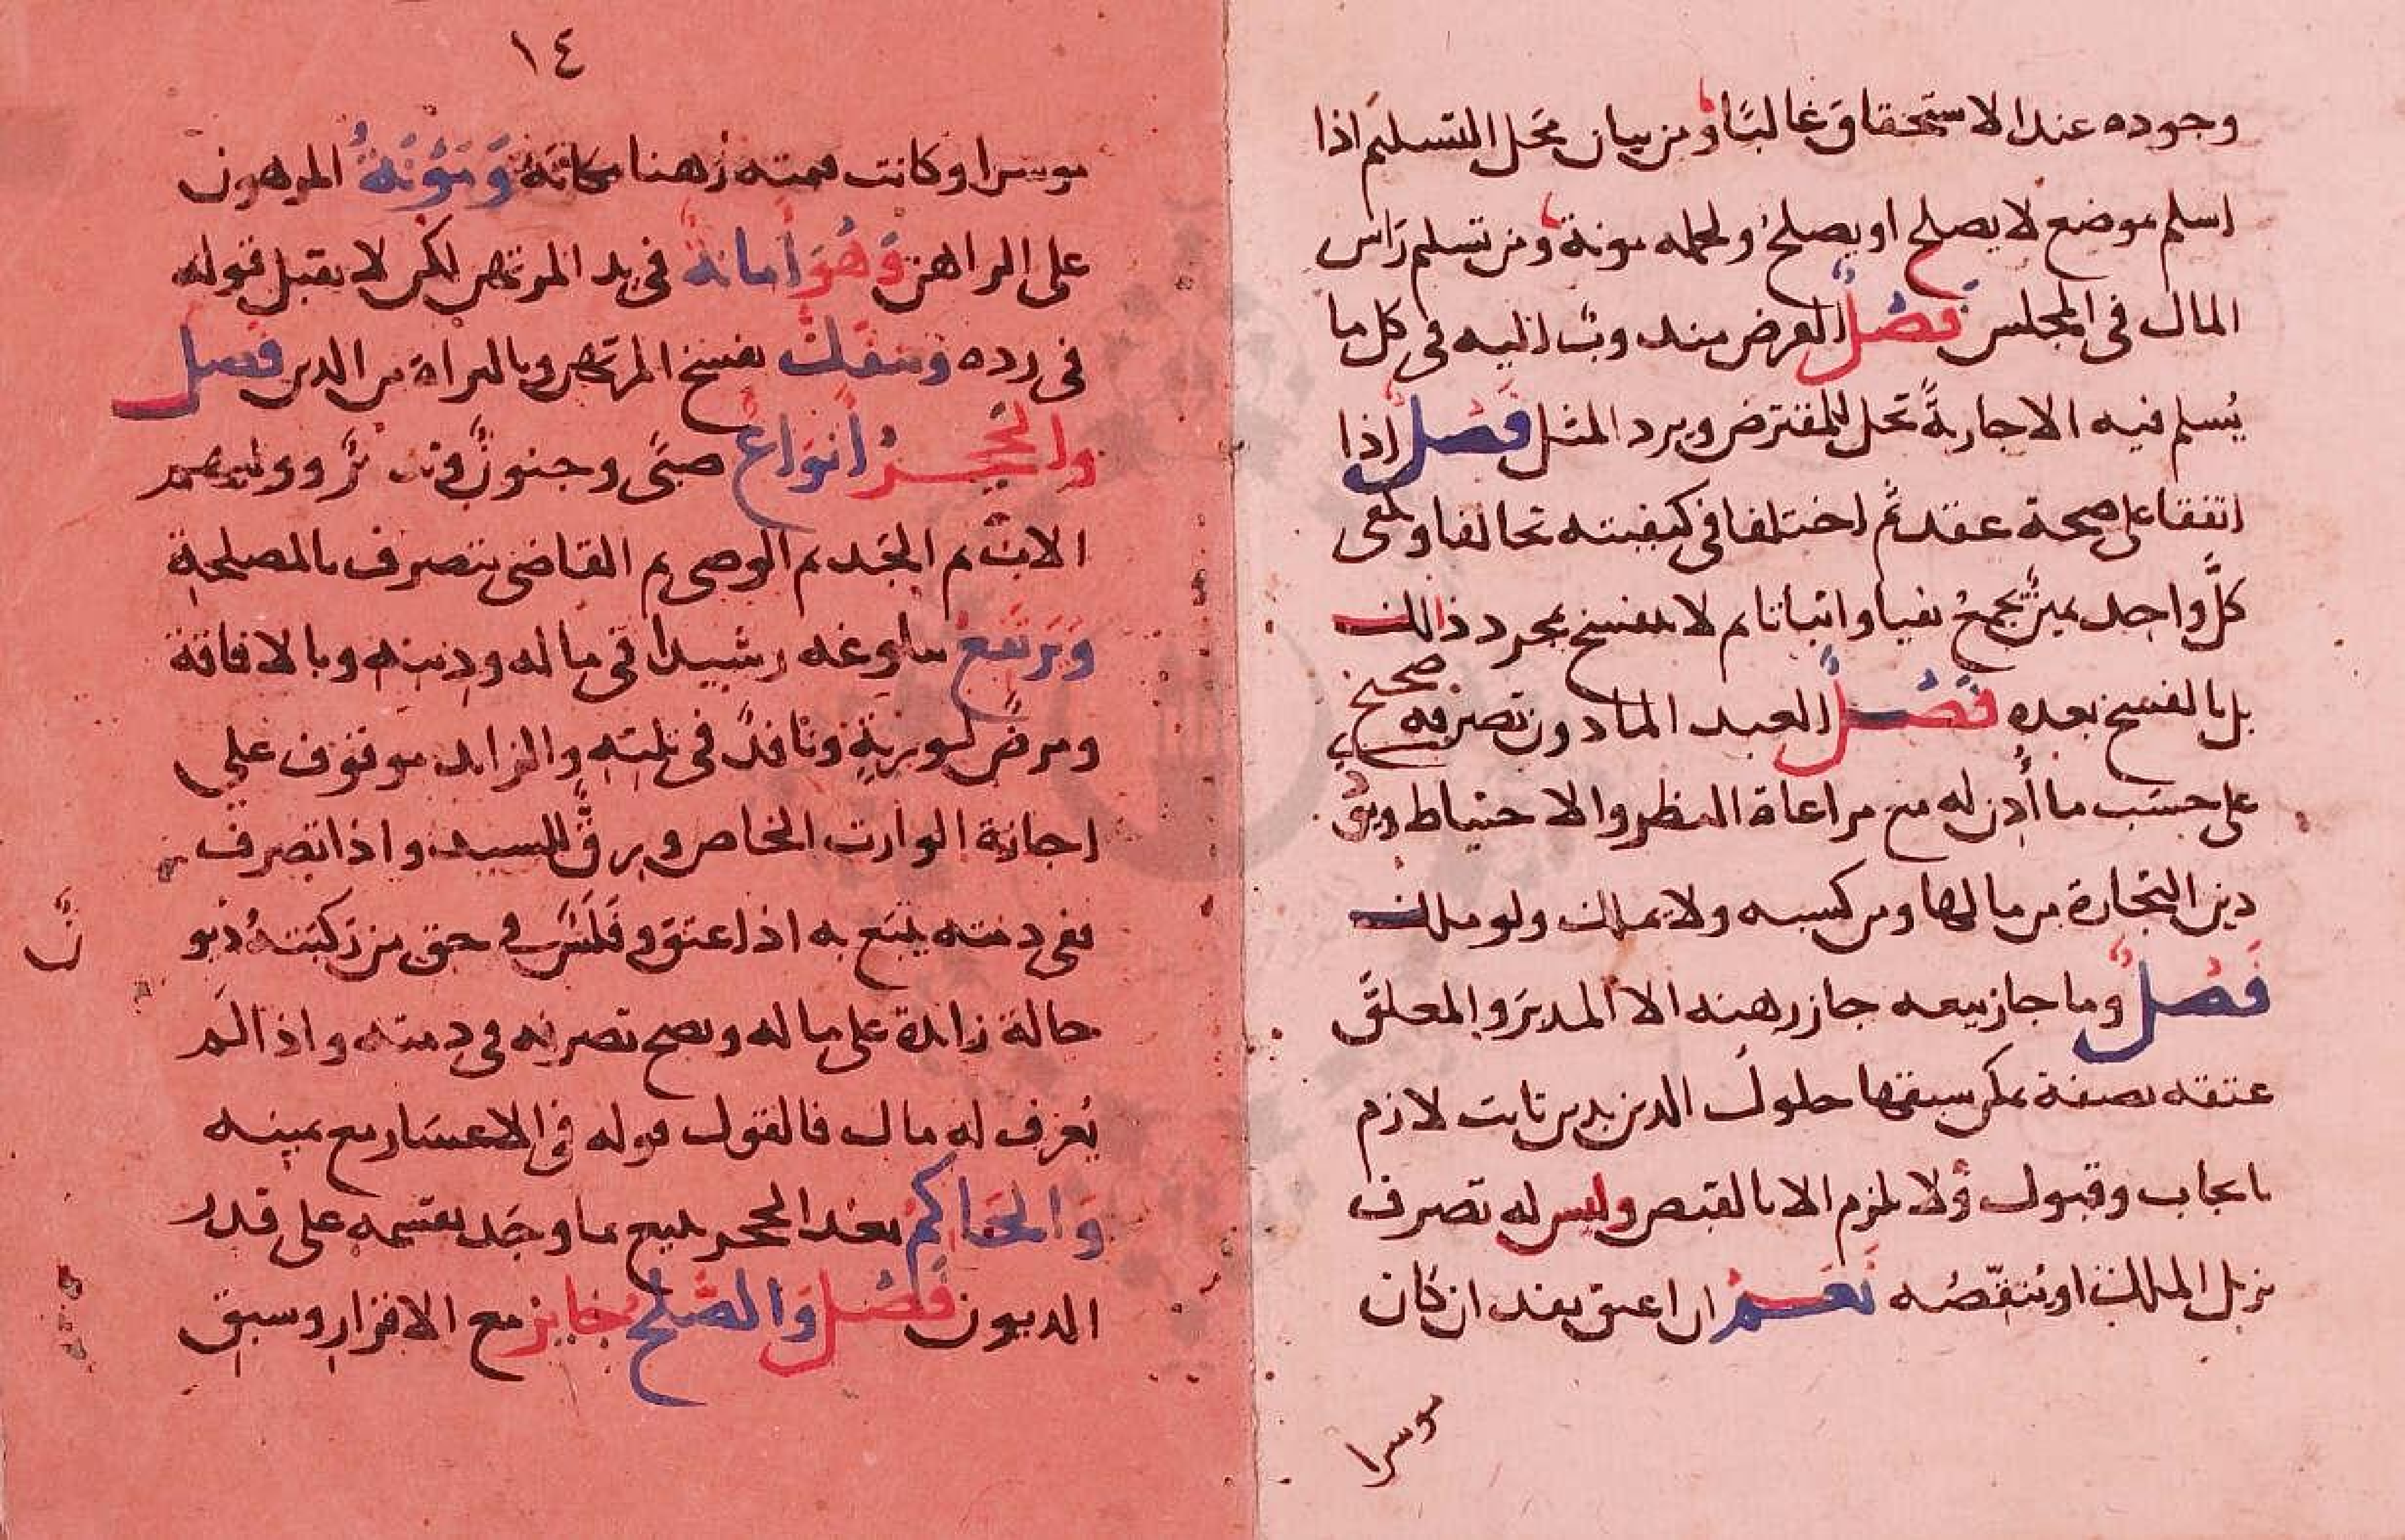 وجوده عند الاستحقاق غالبًا ومن بيان محل التسليم اذا
اسلم موضع لا يصلح او يصلح ولحمله مونة ومن تسلم راس
المال في المجلس فصل القرض مندوب اليه في كل ما
يُسلم فيه الا جارية تحل للمقترض ويرد المثل فصل اذا
اتفقا على صحة عقد ثم اختلفا في كيفيته تحالفا وكفى
كل واحد يمين تجمع نفيا واثباتا ثم لا ينفسخ بمجرد ذالك
بل بالفسخ بعده فصل العبد المادون تصرفه صحيح
على حسب ما أُذن له مع مراعاة النظر والاحتياط ويوَ
دين التجارة من مالها ومن كسبه ولا يملك ولو ملك
فصل وما جاز بيعه جاز رهنه الا المدبر والمعلق
عتقه بصفة يمكن سبقها حلول الدين بدين ثابت لازم
بايجاب وقبول ولا يلزم الا بالقبض وليس له تصرف
يزيل الملك او يُنقّصُه نعم ان اعتق نفذ ان كان
موسرا
١٤
موسرا وكانت قيمته رهنا مكانه ومَؤُنَةُ المرهون
على الراهن وَهُوَ أمانة في يد المرتهن لكن لا يقبل قوله
في رده وينفك بفسخ المرتهن وبالبراة من الدين فصل
والحجر أنواع صبًى وجنون ووليهم
الاب ثم الجد ثم الوصي ثم القاضي يتصرف بالمصلحة
وَيَرتفع ببلوغه رشيدا في ماله ودينه وبالافاقة
ومرض لورثة ونافذ في ثلثه والزايد موقوف على
اجازة الوارث الخاص ورق للسيد واذا تصرف
ففي ذمته يتبع به اذا عتق وفلس في حق من ركبته ديو
ن
حالة زائدة على ماله ويصح تصرفه في ذمته واذا لم
يُعرف له مال فالقول قوله في الاعسار مع يمينه
وَالحَاكم بعد الحجر يبيع ما وجد يقسمه على قدر
الديون فصل وَالصُلح جايز مع الاقرار وسبق